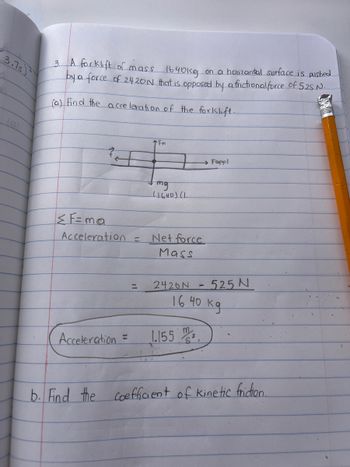 3.7c)
3. A forklift of mass 1640kg on a horizontal surface is pushed
by a force of 2420N that is opposed by a frictional force of 525 N.
(a) Find the acceleration of the forklift.
Fn
?
Fappl
mg
(1640)(1.
ΣF=ma
Acceleration = Net force
Mass
= 2420N - 525 N
1640 kg
Acceleration = 1.155 m/s².
b. Find the coefficient of kinetic friction.